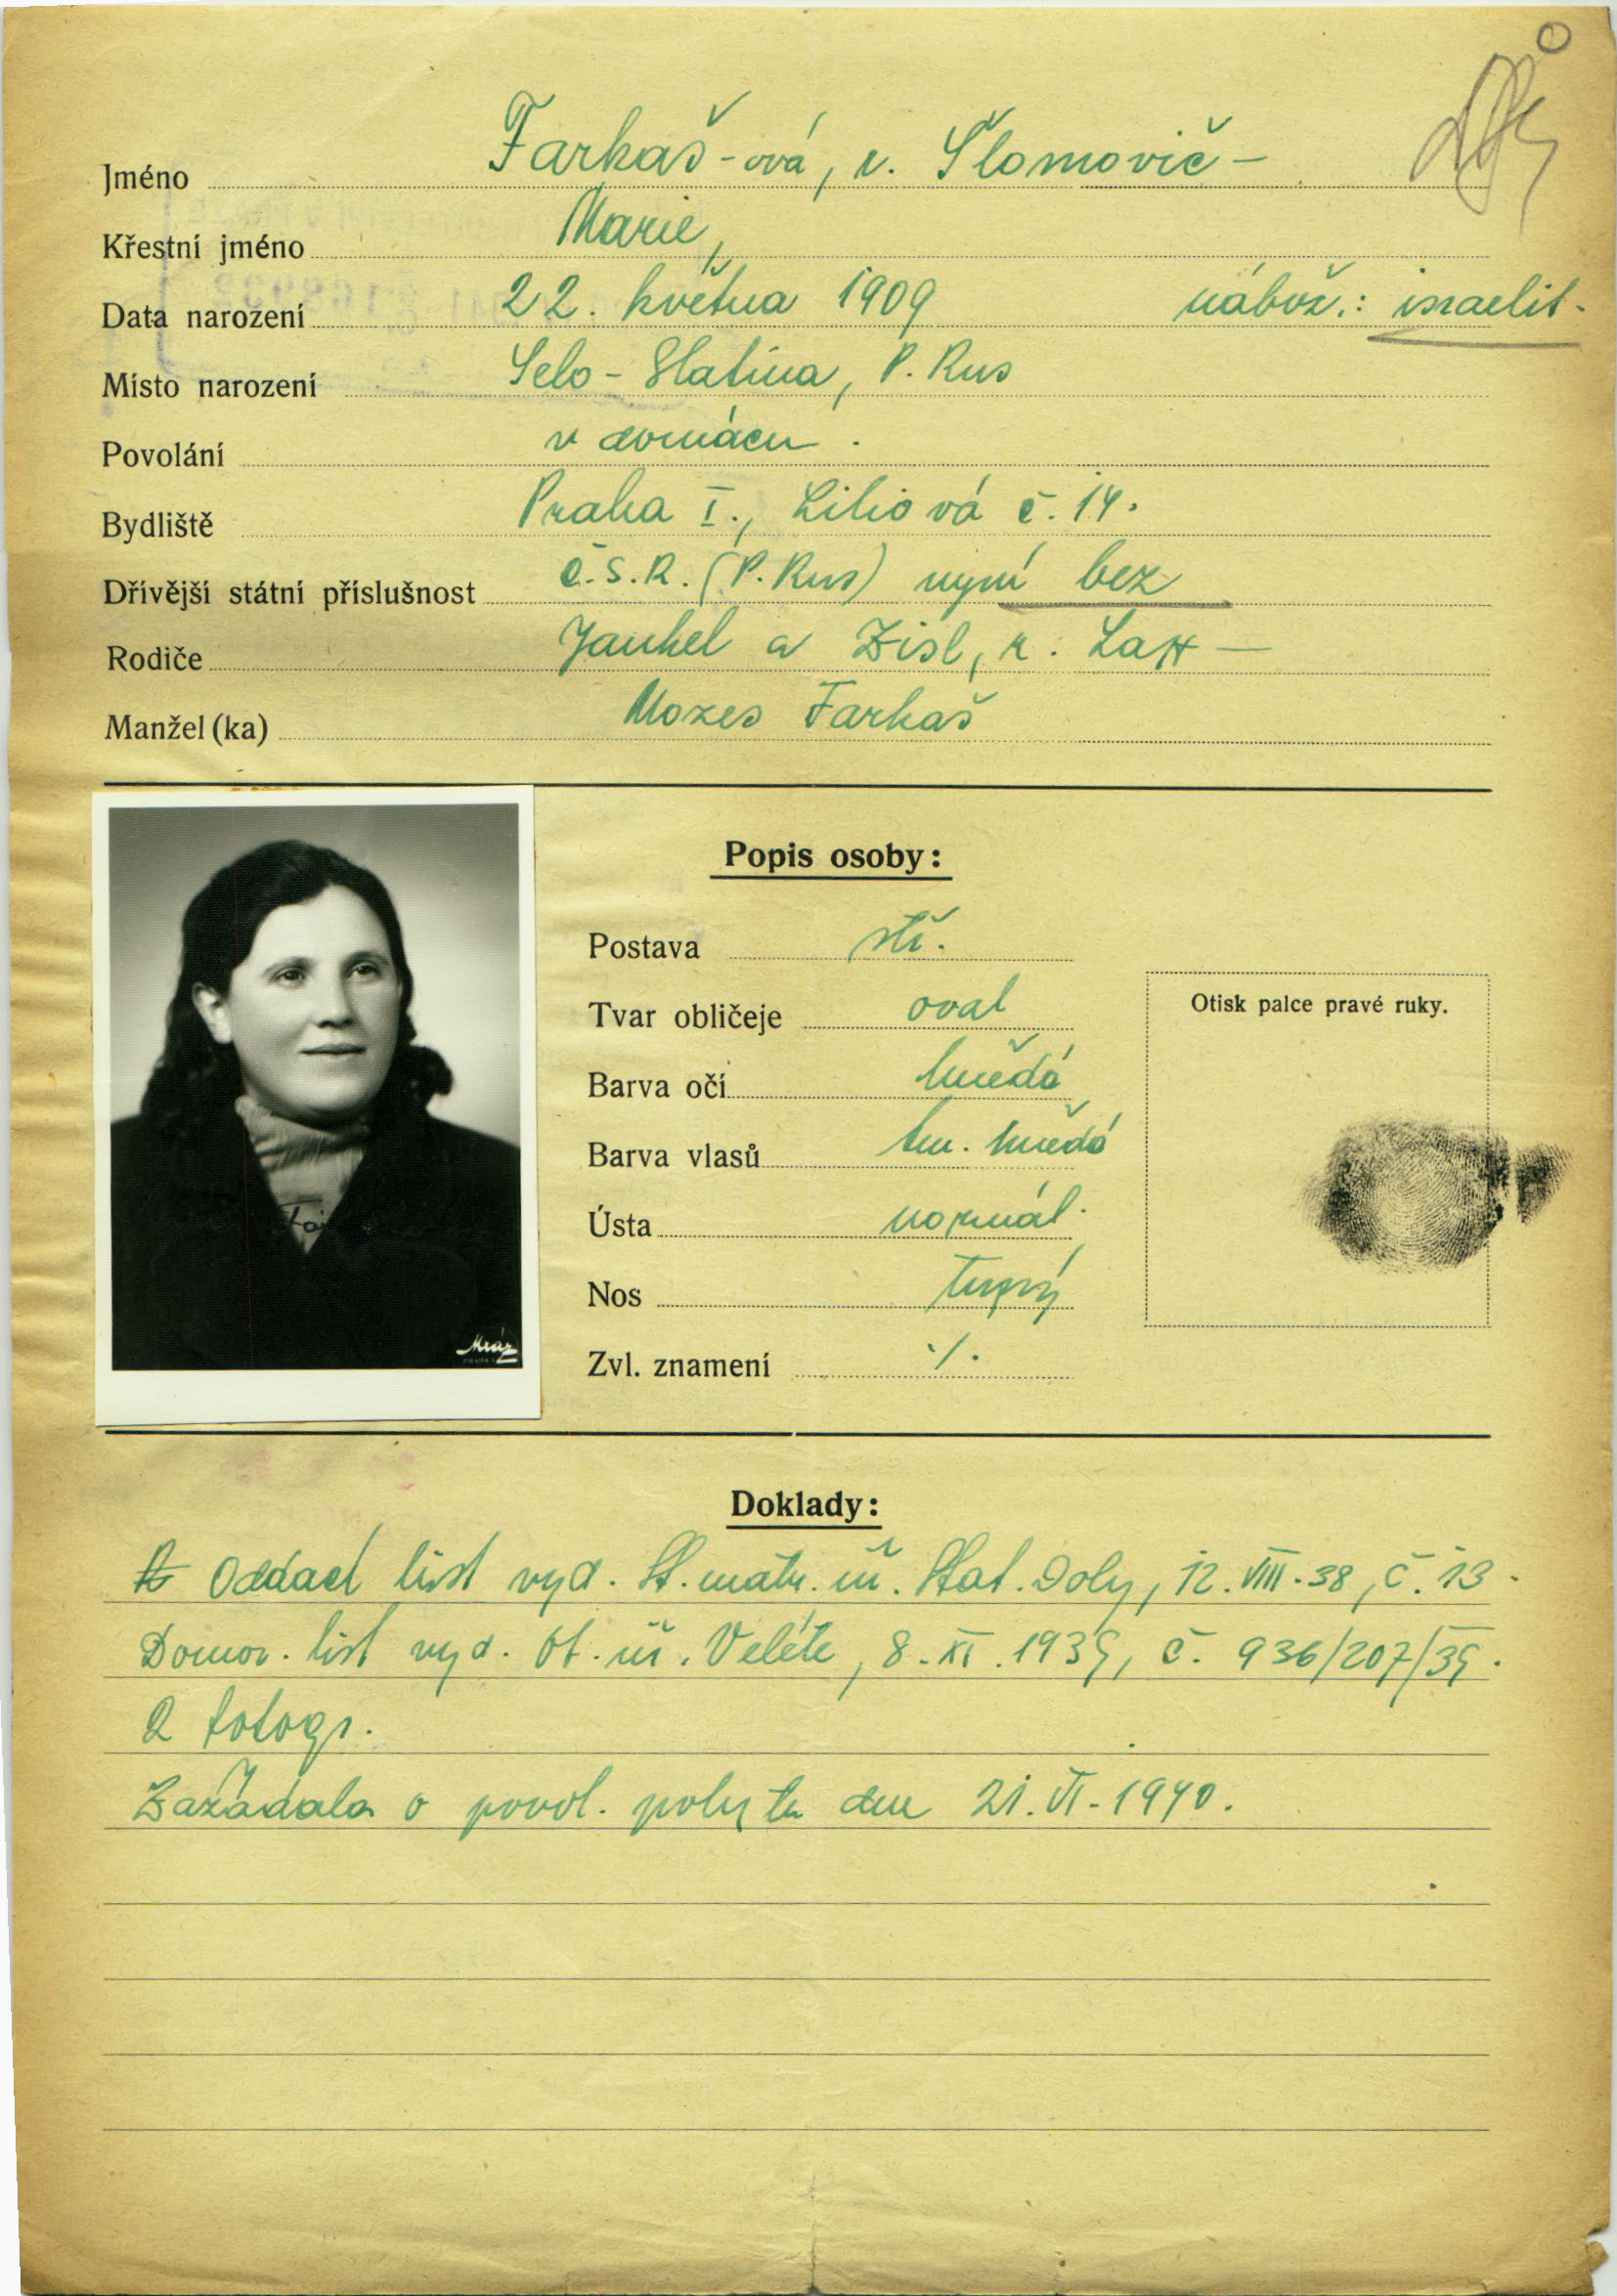 Jméno Farkaš-ová, r. Šlomovič -
Křestní jméno Marie,
Data narození 22. května 1909 nábož.: israelit.
Místo narození Selo-Slatina, P. Rus
Povolání v domácn.
Bydliště Praha I., Liliová č. 14.
Dřívější státní příslušnost Č.S.R. (P. Rus) nyní bez
Rodiče Jankel a Zisl, r. Lax -
Manžel(ka) Mozes Farkaš
Popis osoby:
Postava stř.
Tvar obličeje oval
Barva očí hnědá
Barva vlasů tm. hnědá
Ústa normál.
Nos tupý
Zvl. znamení ·/.
Otisk palce pravé ruky.
Mráz
Doklady:
Oddací list vyd. St. matr. úř. Slat. Doly, 12. VIII. 38, č. 13.
Domov. list vyd. Ob. úř. Veléte, 8. XI. 1939, č. 936/207/39.
2 fotogr.
Zažádala o povol. pobytu dne 21. VI. 1940.